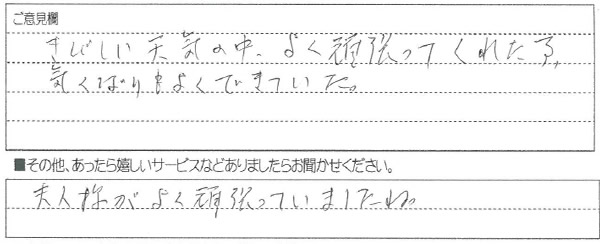 ご意見欄
きびしい天気の中、よく頑張ってくれた了、
気くばりもよくできていた。
■その他、あったら嬉しいサービスなどありましたらお聞かせください。
夫人様がよく頑張っていましたね。